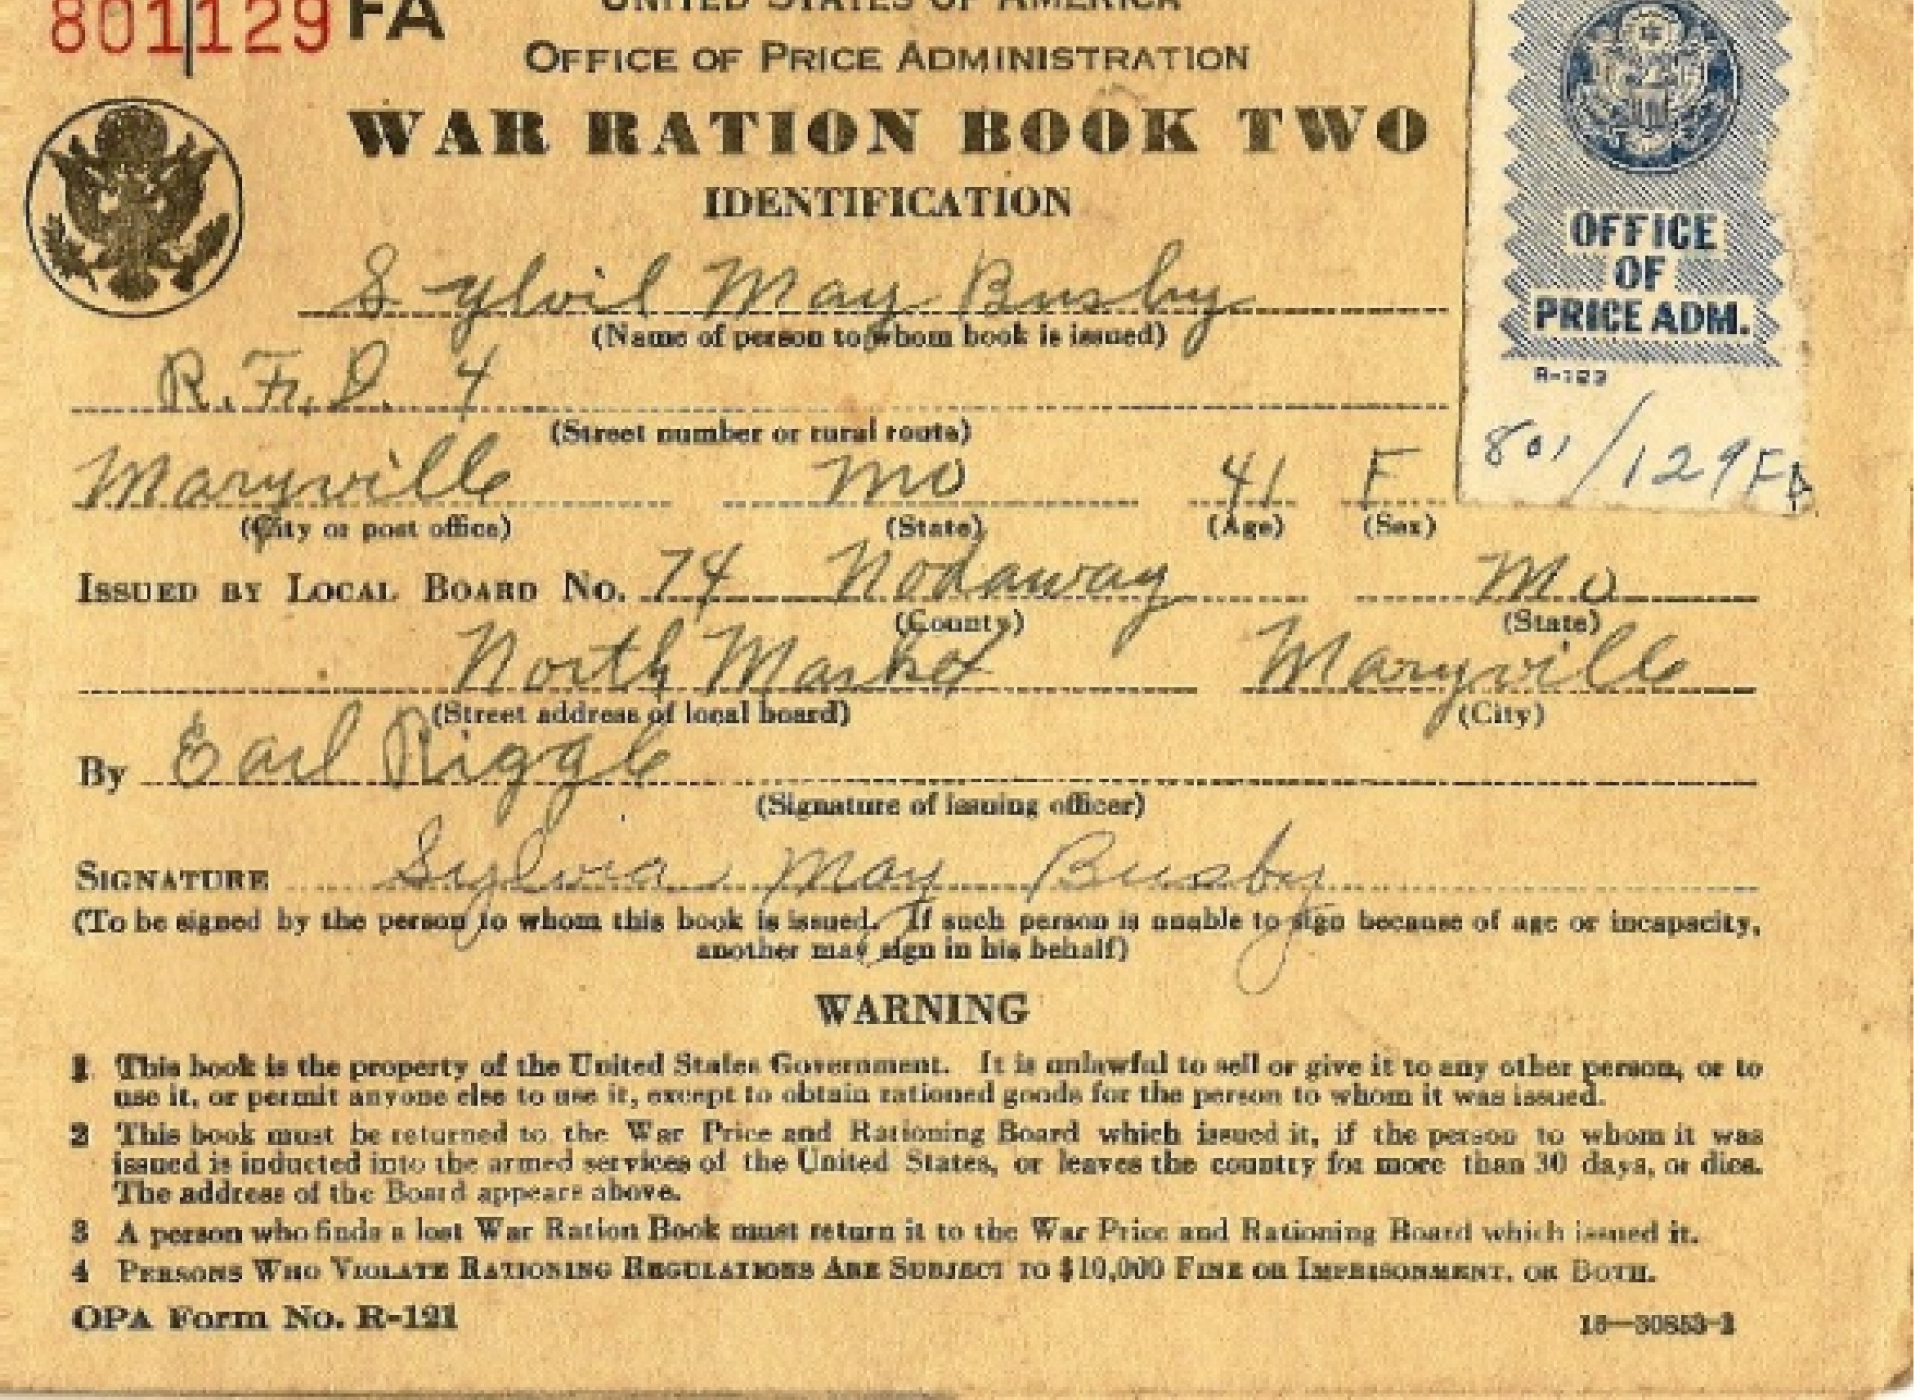 801129 FA
UNITED STATES OF AMERICA
OFFICE OF PRICE ADMINISTRATION
WAR RATION BOOK TWO
IDENTIFICATION
OFFICE
OF
PRICE ADM.
R-123
801/129FA
Sylvil May Busby
(Name of person to whom book is issued)
R.F.D. 4
(Street number or rural route)
Maryville Mo 41 F
(City or post office) (State) (Age) (Sex)
ISSUED BY LOCAL BOARD No. 74 Nodaway Mo
(County) (State)
North Market Maryville
(Street address of local board) (City)
By Earl Riggle
(Signature of issuing officer)
SIGNATURE Sylvia May Busby
(To be signed by the person to whom this book is issued. If such person is unable to sign because of age or incapacity,
another may sign in his behalf)
WARNING
1 This book is the property of the United States Government. It is unlawful to sell or give it to any other person, or to
use it, or permit anyone else to use it, except to obtain rationed goods for the person to whom it was issued.
2 This book must be returned to the War Price and Rationing Board which issued it, if the person to whom it was
issued is inducted into the armed services of the United States, or leaves the country for more than 30 days, or dies.
The address of the Board appears above.
3 A person who finds a lost War Ration Book must return it to the War Price and Rationing Board which issued it.
4 PERSONS WHO VIOLATE RATIONING REGULATIONS ARE SUBJECT TO $10,000 FINE OR IMPRISONMENT, OR BOTH.
OPA Form No. R-121
16—30853-1